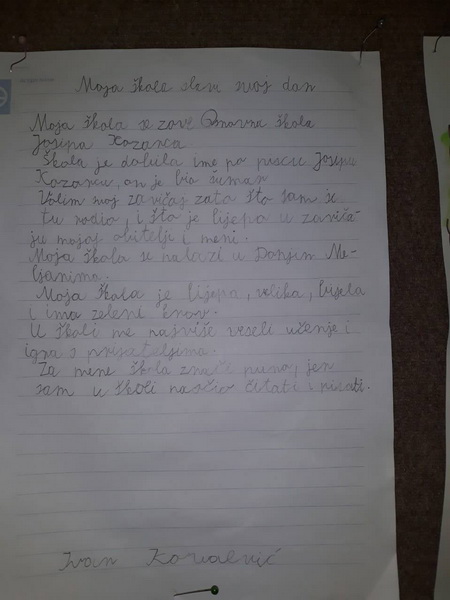 Moja škola slavi svoj dan
Moja škola se zove Osnovna škola
Josipa Kozarca
Škola je dobila ime po piscu Josipu
Kozarcu, on je bio šumar
Volim svoj zavičaj zato što sam se
tu rodio, i što je lijepo u zaviča-
ju mojoj obitelji i meni.
Moja škola se nalazi u Donjim Me-
ljanima.
Moja škola je lijepa, velika, bijela
i ima zeleni krov.
U školi me najviše veseli učenje i
igra s prijateljima.
Za mene škola znači puno, jer
sam u školi naučio čitati i pisati.
Ivan